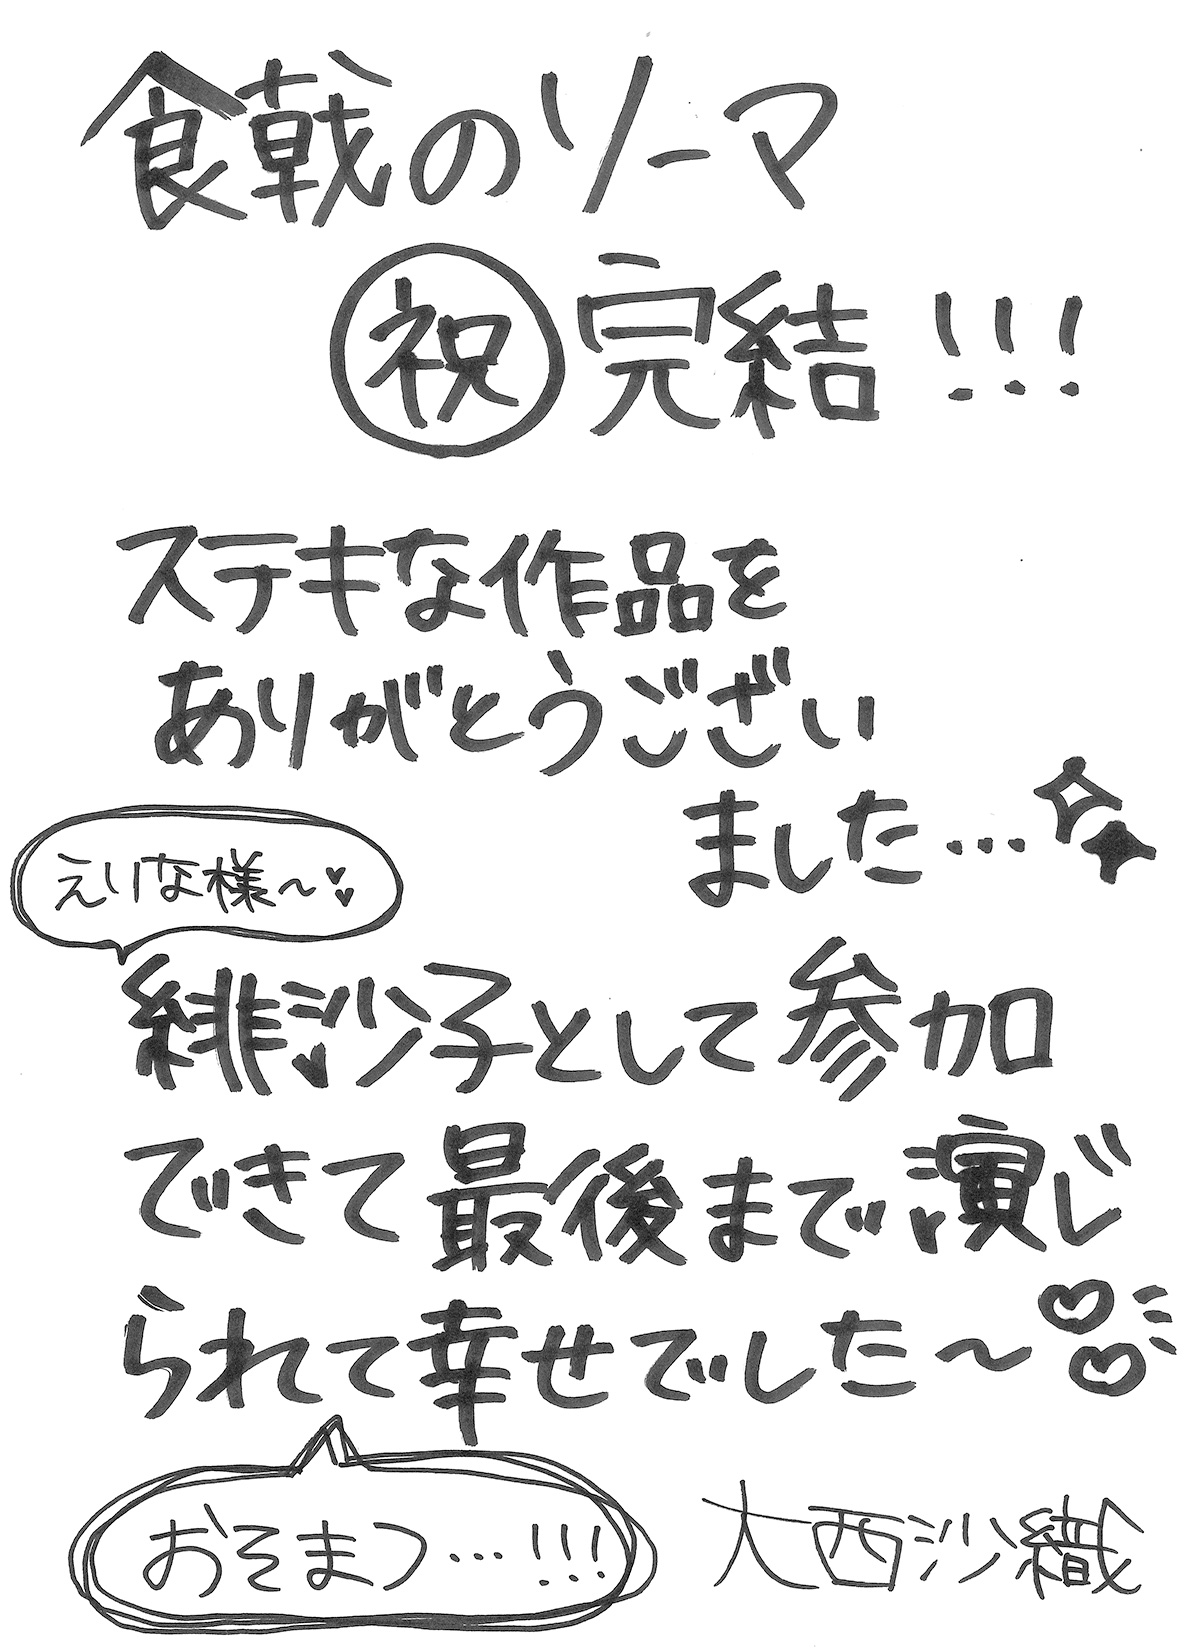 食戟のソーマ
㊗完結!!!
ステキな作品を
ありがとうござい
ました…
えりな様〜
緋沙子として参加
できて最後まで演じ
られて幸せでした〜
おそまつ…!!!
大西沙織